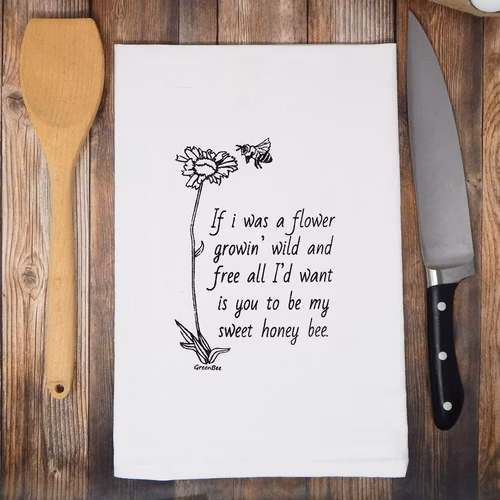 If i was a flower
growin' wild and
free all I'd want
is you to be my
sweet honey bee.
GreenBee